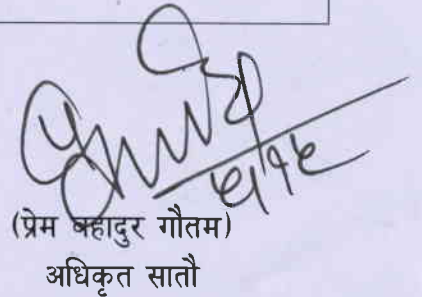 ५।१८
(प्रेम बहादुर गौतम)
अधिकृत सातौ